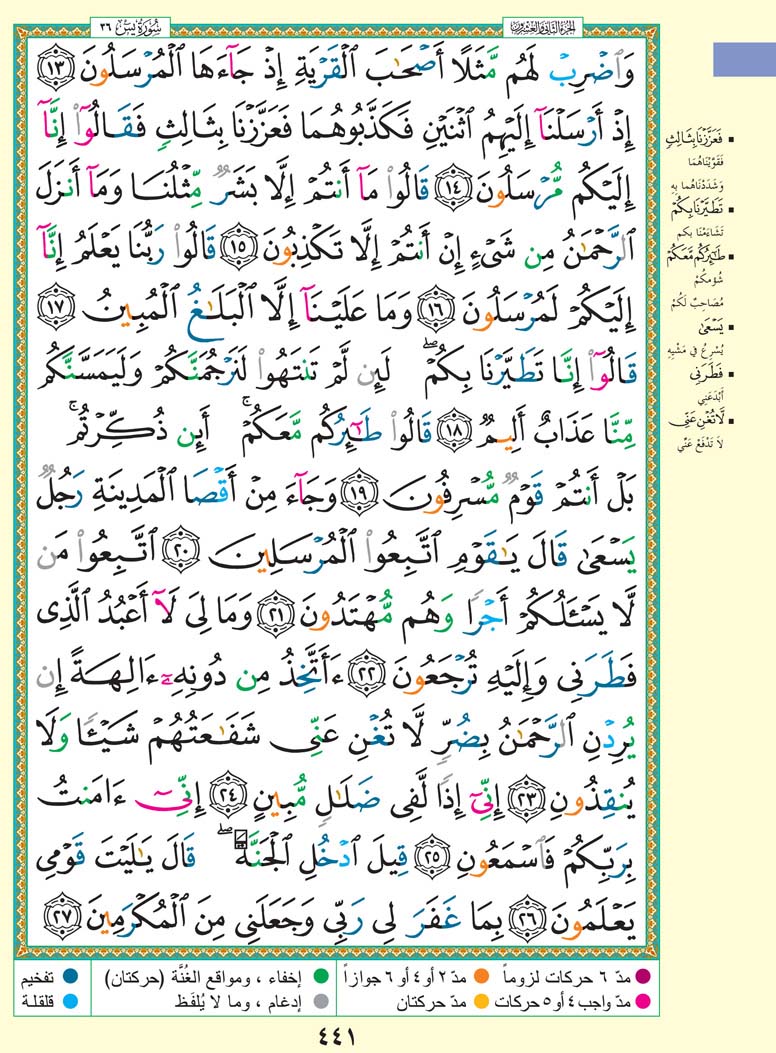 الجزء الثاني والعشرون
سُورَةُ يسٓ ٣٦
وَٱضْرِبْ لَهُم مَّثَلًا أَصْحَٰبَ ٱلْقَرْيَةِ إِذْ جَآءَهَا ٱلْمُرْسَلُونَ ١٣
إِذْ أَرْسَلْنَآ إِلَيْهِمُ ٱثْنَيْنِ فَكَذَّبُوهُمَا فَعَزَّزْنَا بِثَالِثٍ فَقَالُوٓا۟ إِنَّآ
إِلَيْكُم مُّرْسَلُونَ ١٤ قَالُوا۟ مَآ أَنتُمْ إِلَّا بَشَرٌ مِّثْلُنَا وَمَآ أَنزَلَ
ٱلرَّحْمَٰنُ مِن شَىْءٍ إِنْ أَنتُمْ إِلَّا تَكْذِبُونَ ١٥ قَالُوا۟ رَبُّنَا يَعْلَمُ إِنَّآ
إِلَيْكُمْ لَمُرْسَلُونَ ١٦ وَمَا عَلَيْنَآ إِلَّا ٱلْبَلَٰغُ ٱلْمُبِينُ ١٧
قَالُوٓا۟ إِنَّا تَطَيَّرْنَا بِكُمْ ۖ لَئِن لَّمْ تَنتَهُوا۟ لَنَرْجُمَنَّكُمْ وَلَيَمَسَّنَّكُم
مِّنَّا عَذَابٌ أَلِيمٌ ١٨ قَالُوا۟ طَٰٓئِرُكُم مَّعَكُمْ ۚ أَئِن ذُكِّرْتُم ۚ
بَلْ أَنتُمْ قَوْمٌ مُّسْرِفُونَ ١٩ وَجَآءَ مِنْ أَقْصَا ٱلْمَدِينَةِ رَجُلٌ
يَسْعَىٰ قَالَ يَٰقَوْمِ ٱتَّبِعُوا۟ ٱلْمُرْسَلِينَ ٢٠ ٱتَّبِعُوا۟ مَن
لَّا يَسْـَٔلُكُمْ أَجْرًا وَهُم مُّهْتَدُونَ ٢١ وَمَا لِىَ لَآ أَعْبُدُ ٱلَّذِى
فَطَرَنِى وَإِلَيْهِ تُرْجَعُونَ ٢٢ ءَأَتَّخِذُ مِن دُونِهِۦٓ ءَالِهَةً إِن
يُرِدْنِ ٱلرَّحْمَٰنُ بِضُرٍّ لَّا تُغْنِ عَنِّى شَفَٰعَتُهُمْ شَيْـًٔا وَلَا
يُنقِذُونِ ٢٣ إِنِّىٓ إِذًا لَّفِى ضَلَٰلٍ مُّبِينٍ ٢٤ إِنِّىٓ ءَامَنتُ
بِرَبِّكُمْ فَٱسْمَعُونِ ٢٥ قِيلَ ٱدْخُلِ ٱلْجَنَّةَ ۖ قَالَ يَٰلَيْتَ قَوْمِى
يَعْلَمُونَ ٢٦ بِمَا غَفَرَ لِى رَبِّى وَجَعَلَنِى مِنَ ٱلْمُكْرَمِينَ ٢٧
▪ فَعَزَّزْنَا بِثَالِثٍ
فَقَوَّيْنَاهُمَا
وَشَدَدْنَاهُمَا بِهِ
▪ تَطَيَّرْنَا بِكُمْ
تَشَاءَمْنَا بِكم
▪ طَٰٓئِرُكُم مَّعَكُمْ
شُؤمكُمْ
مُصَاحِبٌ لَكُمْ
▪ يَسْعَىٰ
يُسْرِعُ فِي مَشْيِهِ
▪ فَطَرَنِى
أَبْدَعَنِي
▪ لَّا تُغْنِ عَنِّى
لَا تَدْفَعْ عَنِّي
مدّ ٦ حركات لزوماً مدّ ٢ أو ٤ أو ٦ جوازاً إخفاء ، ومواقع الغُنَّة (حركتان) تفخيم
مدّ واجب ٤ أو ٥ حركات مدّ حركتان إدغام ، وما لا يُلفَظ قلقلة
٤٤١